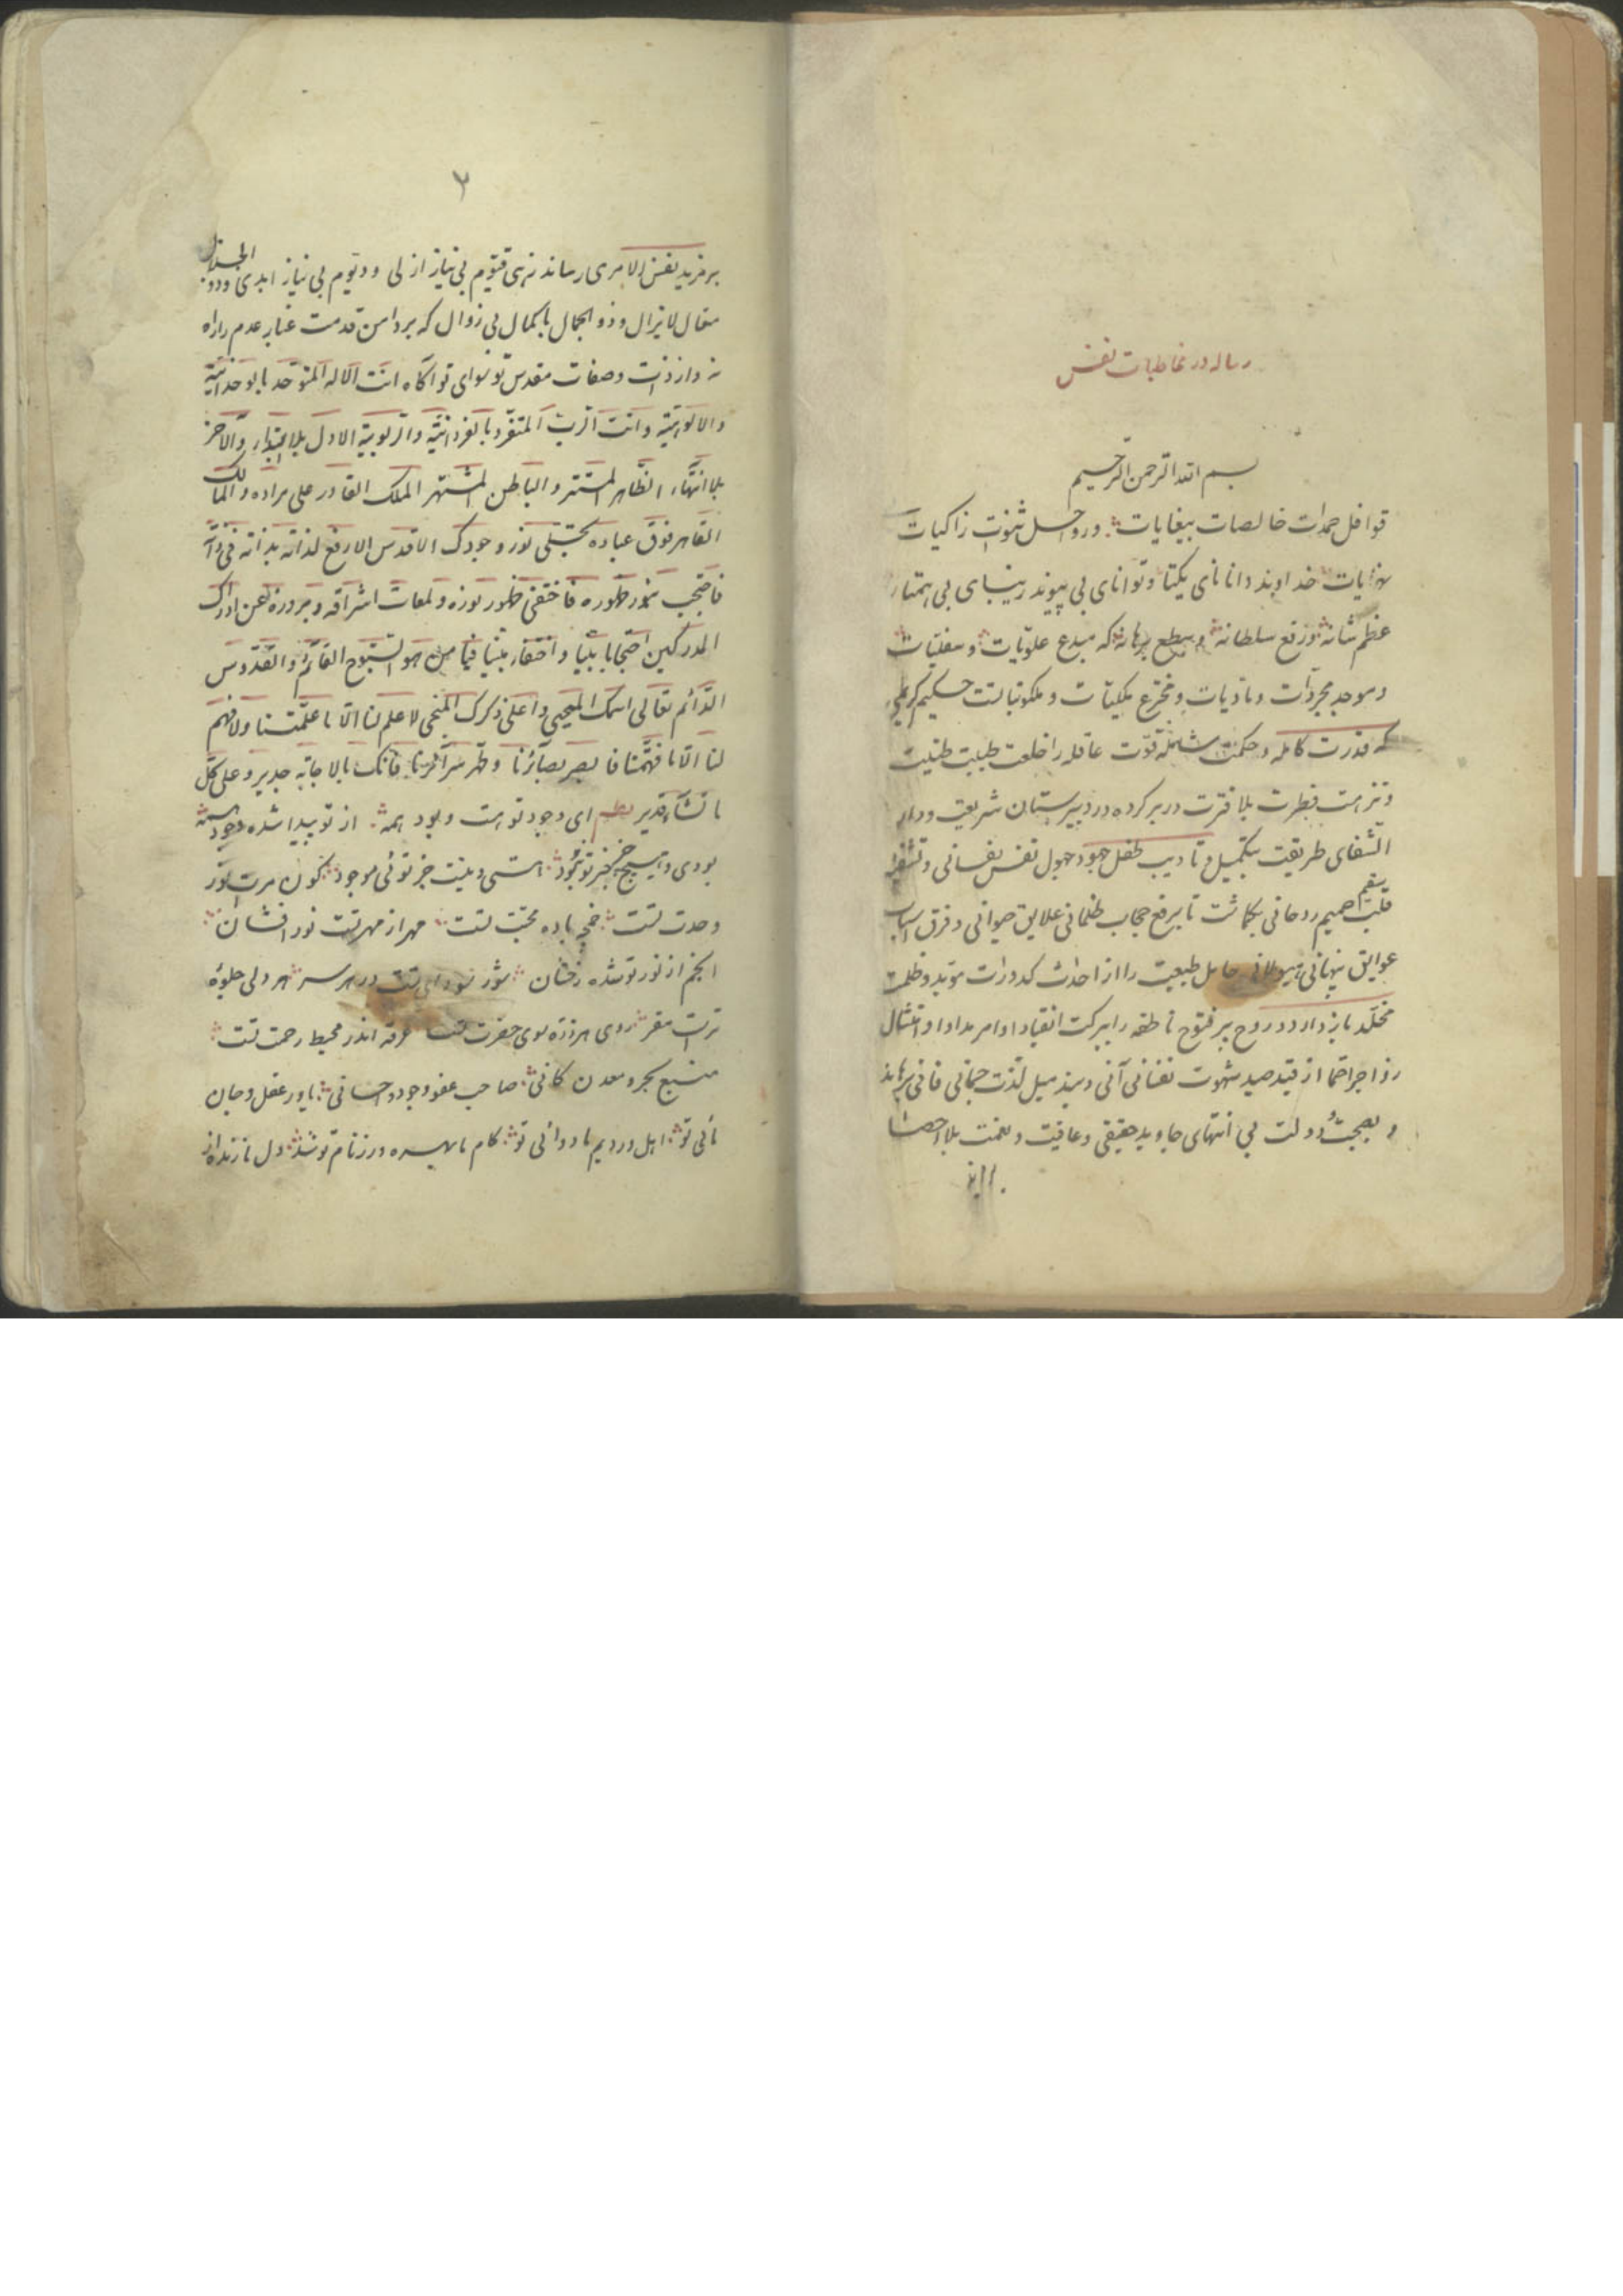 رساله در مخاطبات نفس
بسم الله الرحمن الرحیم
قوافل حمدات خالصات بیغایات و رواحل ثنوت زاکیات
نهایات خداوند دانای یکتا و توانای بی پیوند بی همتا
عظم شانه و رفع سلطانه و سطع برهانه که مبدع علویات و سفلیات
و موجد مجردات و مادیات و مخترع ملکیات و ملکوتیاتست حکیم کریمی
که قدرت کامله و حکمت شامله قوت عاقله را خلعت طینت
و نزهت فطرت بلا فترت در بر کرده در دبیرستان شریعت و دار
الشفای طریقت بتکمیل و تادیب طفل جهود جهول نفس نفسانی و
قلب سقیم صمیم روحانی بگماشت تا برفع حجاب ظلمانی علایق حیوانی و فرق اسباب
عوایق پنهانی هیولانی حایل طبیعت را از احداث کدورات موبد و ظلمت
مخلد باز دارد و روح پر فتوح ناطقه را ببرکت انقیاد اوامر مدادا و امتثال
زواجر احما از قید صید شهوت نفسانی آنی و میل لذت جسمانی فانی برهاند
و بهجت و دولت بی انتهای جاوید حقیقی و عافیت و نعمت بلا احصا
۲
بر مزید نفس الامری رساند زهی قیوم بی نیاز ازلی و دیوم بی نیاز ابدی و ذو الجلال
مقال لایزال و ذو الجمال با کمال بی زوال که بر دامن قدمت غبار عدم را راه
نه و از ذات و صفات مقدس تو سوای تو آگاه انت الاله المتوحد بالوحدانیة
والالوهیة و انت الرب المتفرد بالفردانیة والربوبیة الاول بلا ابتداء والآخر
بلا انتهاء الظاهر المستتر والباطن المشتهر الملک القادر علی مراده والمالک
القاهر فوق عباده تجلی نور وجودک الاقدس الارفع لذاته بذاته فی ذاته
فاحتجب بنور ظهوره فاختفی ظهور نوره و لمعات اشراقه و بروزه عن ادراک
المدرکین احتجابا بینا و اختفاء مبینا فیا من هو السبوح القائم والقدوس
الدائم تعالی اسمک المحیی و اعلی ذکرک المنجی لا علم لنا الا ما علمتنا ولا فهم
لنا الا ما فهمتنا فابصر بصائرنا و طهر سرآئرنا فانک بالاجابه جدیر و علی کل
ما تشآء قدیر نظم ای وجود تو هست و بود همه از تو پیدا شده وجود همه
بودی و هیچ چیز جز تو نبود هستی و نیست جز توئی موجود کون مرت نور
وحدت تست خم باده محبت تست مهر از مهر تست نور افشان
انجم از نور تو شده رخشان شور سودای تست در هر سر هر دلی جلوه
ترت مقر روی هر ذره سوی حضرت تست غرقه اندر محیط رحمت تست
منبع بحر و معدن کانی صاحب عفو و جود و احسانی یاور عقل و جان
مائی تو اهل دردیم ما دوائی تو کام ما بهره ور ز نام تو شد دل ما زنده از